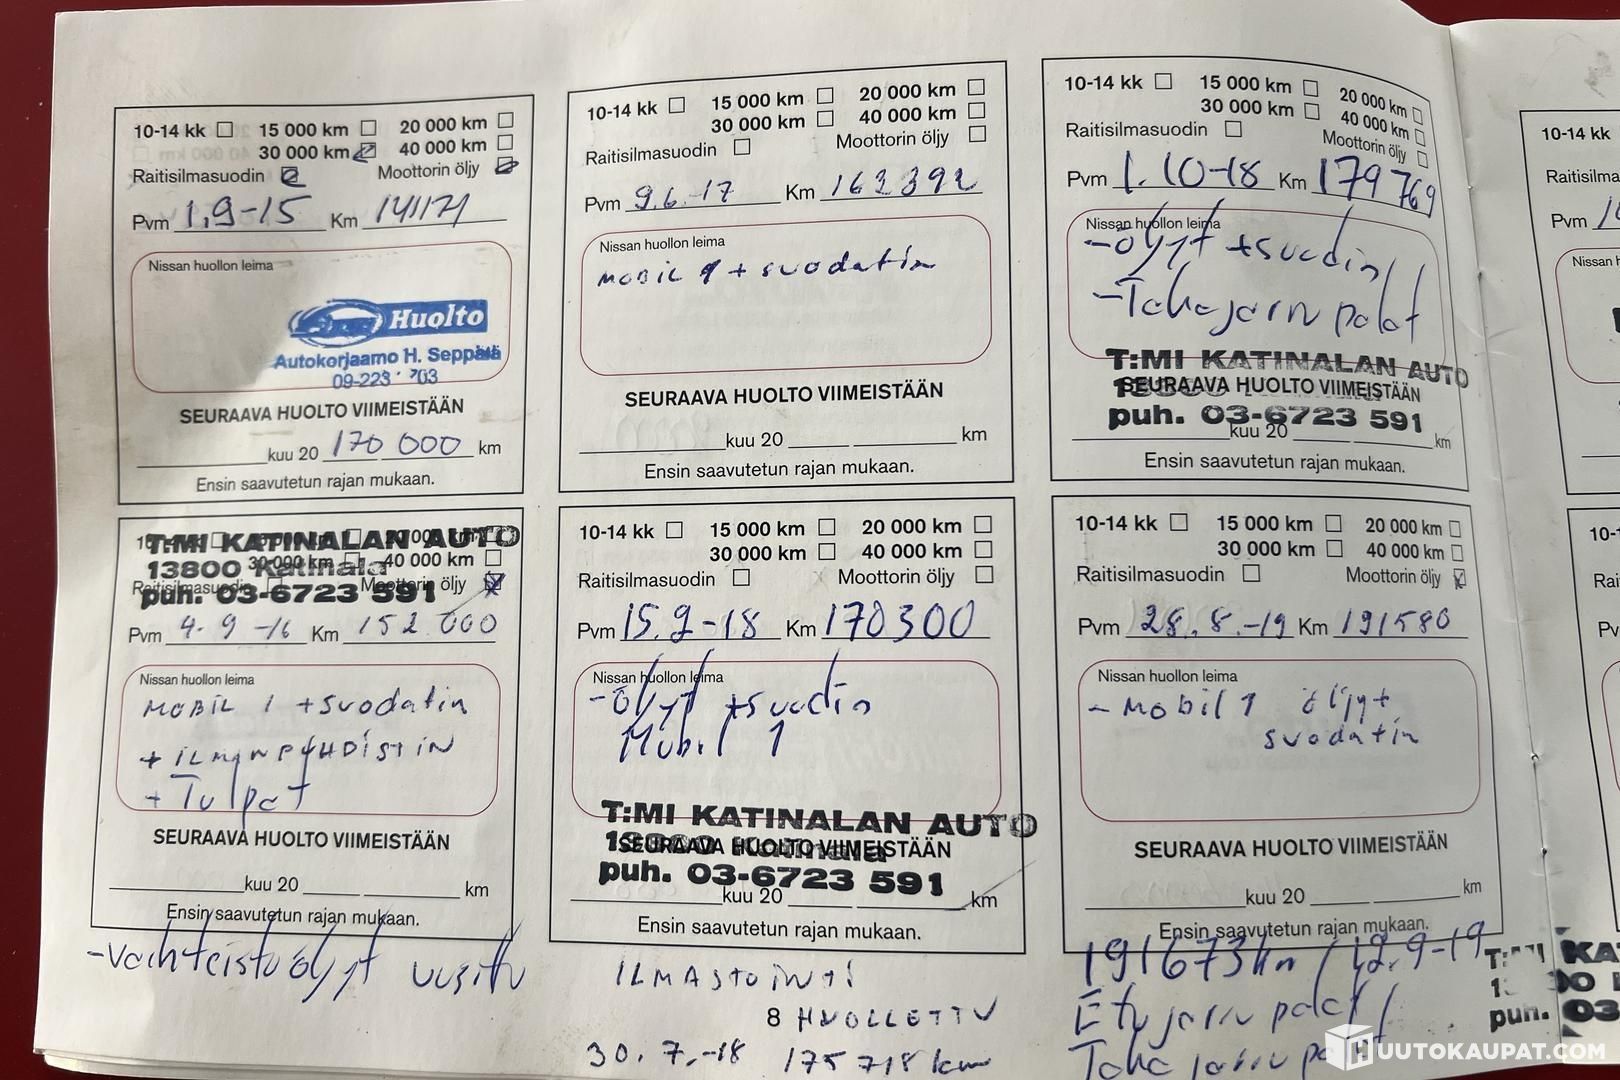 10-14 kk 15 000 km 20 000 km
30 000 km 40 000 km
Raitisilmasuodin Moottorin öljy
Pvm 1.9-15 Km 141171
Nissan huollon leima
Huolto
Autokorjaamo H. Seppälä
09-223 703
SEURAAVA HUOLTO VIIMEISTÄÄN
kuu 20 170 000 km
Ensin saavutetun rajan mukaan.
10-14 kk 15 000 km 20 000 km
30 000 km 40 000 km
Raitisilmasuodin Moottorin öljy
Pvm 9.6.-17 Km 162392
Nissan huollon leima
MOBIL 1 + suodatin
SEURAAVA HUOLTO VIIMEISTÄÄN
kuu 20 km
Ensin saavutetun rajan mukaan.
10-14 kk 15 000 km 20 000 km
30 000 km 40 000 km
Raitisilmasuodin Moottorin öljy
Pvm 1.10-18 Km 179769
Nissan huollon leima
-öljyt +suodin
-Takajarru palat
T:MI KATINALAN AUTO
SEURAAVA HUOLTO VIIMEISTÄÄN
puh. 03-6723 591
kuu 20 km
Ensin saavutetun rajan mukaan.
T:MI KATINALAN AUTO
30 000 km 40 000 km
13800 Katinala
Raitisilmasuodin Moottorin öljy
puh. 03-6723 591
Pvm 4.9-16 Km 152 000
Nissan huollon leima
MOBIL 1 +suodatin
+ ILMANPUHDISTIN
+ Tulpat
SEURAAVA HUOLTO VIIMEISTÄÄN
kuu 20 km
Ensin saavutetun rajan mukaan.
-vaihteistoöljyt uusittu
10-14 kk 15 000 km 20 000 km
30 000 km 40 000 km
Raitisilmasuodin Moottorin öljy
Pvm 15.2-18 Km 170300
Nissan huollon leima
-öljyt +suodin
Mobil 1
T:MI KATINALAN AUTO
13800 Katinala
SEURAAVA HUOLTO VIIMEISTÄÄN
puh. 03-6723 591
kuu 20 km
Ensin saavutetun rajan mukaan.
ILMASTOINTI
8 HUOLLETTU
30.7.-18 175718 km
10-14 kk 15 000 km 20 000 km
30 000 km 40 000 km
Raitisilmasuodin Moottorin öljy
Pvm 28.8.-19 Km 191580
Nissan huollon leima
- Mobil 1 öljyt
suodatin
SEURAAVA HUOLTO VIIMEISTÄÄN
kuu 20 km
Ensin saavutetun rajan mukaan.
191673km / 12.9-19
Etujarru palat
Takajarru palat
puh.
10-14 kk
HUUTOKAUPAT.COM